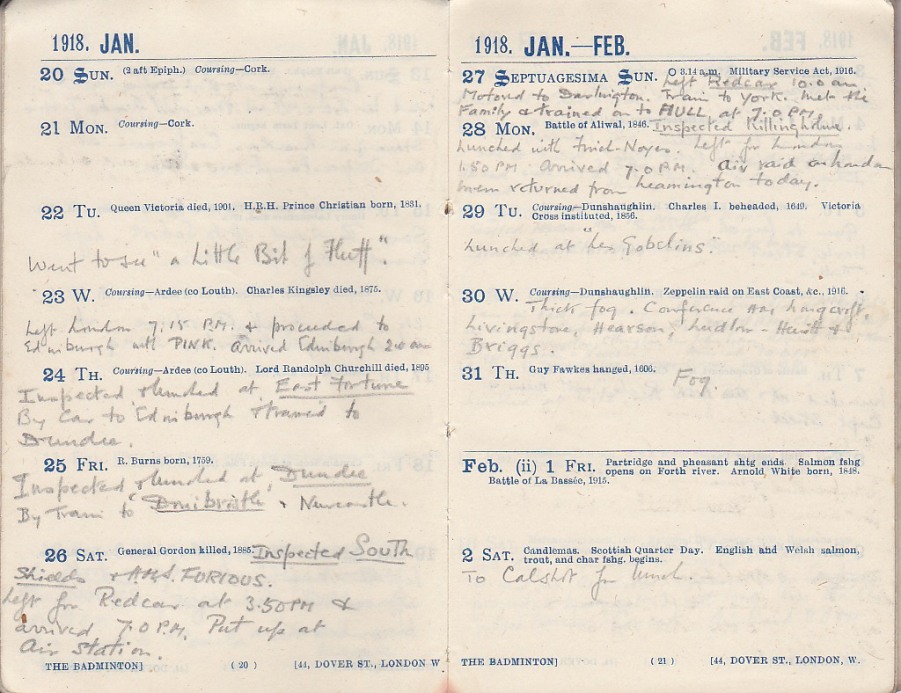 1918. JAN.
20 SUN. (2 aft Epiph.) Coursing—Cork.
21 MON. Coursing—Cork.
22 TU. Queen Victoria died, 1901. H.R.H. Prince Christian born, 1831.
Went to see "a Little Bit of Fluff".
23 W. Coursing—Ardee (co Louth). Charles Kingsley died, 1875.
Left London 7.15 P.M. & proceeded to
Edinburgh with PINK. Arrived Edinburgh 2.0 am
24 TH. Coursing—Ardee (co Louth). Lord Randolph Churchill died, 1895
Inspected & lunched at East Fortune
By Car to Edinburgh & trained to
Dundee.
25 FRI. R. Burns born, 1759.
Inspected & lunched at Dundee
By Train to Donibristle & Newcastle.
26 SAT. General Gordon killed, 1885. Inspected South
Shields & H.M.S. FURIOUS.
Left for Redcar at 3.50 PM &
arrived 7.0 P.M. Put up at
Air Station.
THE BADMINTON] (20) [44, DOVER ST., LONDON W
1918. JAN.—FEB.
27 SEPTUAGESIMA SUN. O 3.14 a.m. Military Service Act, 1916.
Left Redcar 10.0 am
Motored to Darlington. Train to York. Met the
Family & trained on to HULL at 7.0 P.M.
28 MON. Battle of Aliwal, 1846. Inspected Killingholme.
Lunched with Left for London
1.50 PM Arrived 7.0 P.M. Air raid on London
returned from Leamington today.
29 TU. Coursing—Dunshaughlin. Charles I. beheaded, 1649. Victoria
Cross instituted, 1856.
Lunched at "Les Gobelins."
30 W. Coursing—Dunshaughlin. Zeppelin raid on East Coast, &c., 1916.
Thick fog. Conference
Livingstone, Hearson, Ludlow-Hewitt &
Briggs.
31 TH. Guy Fawkes hanged, 1606. Fog.
Feb. (ii) 1 FRI. Partridge and pheasant shtg ends. Salmon fshg
opens on Forth river. Arnold White born, 1848.
Battle of La Bassée, 1915.
2 SAT. Candlemas. Scottish Quarter Day. English and Welsh salmon,
trout, and char fshg. begins.
To Calshot for lunch.
THE BADMINTON] (21) [44, DOVER ST., LONDON, W.